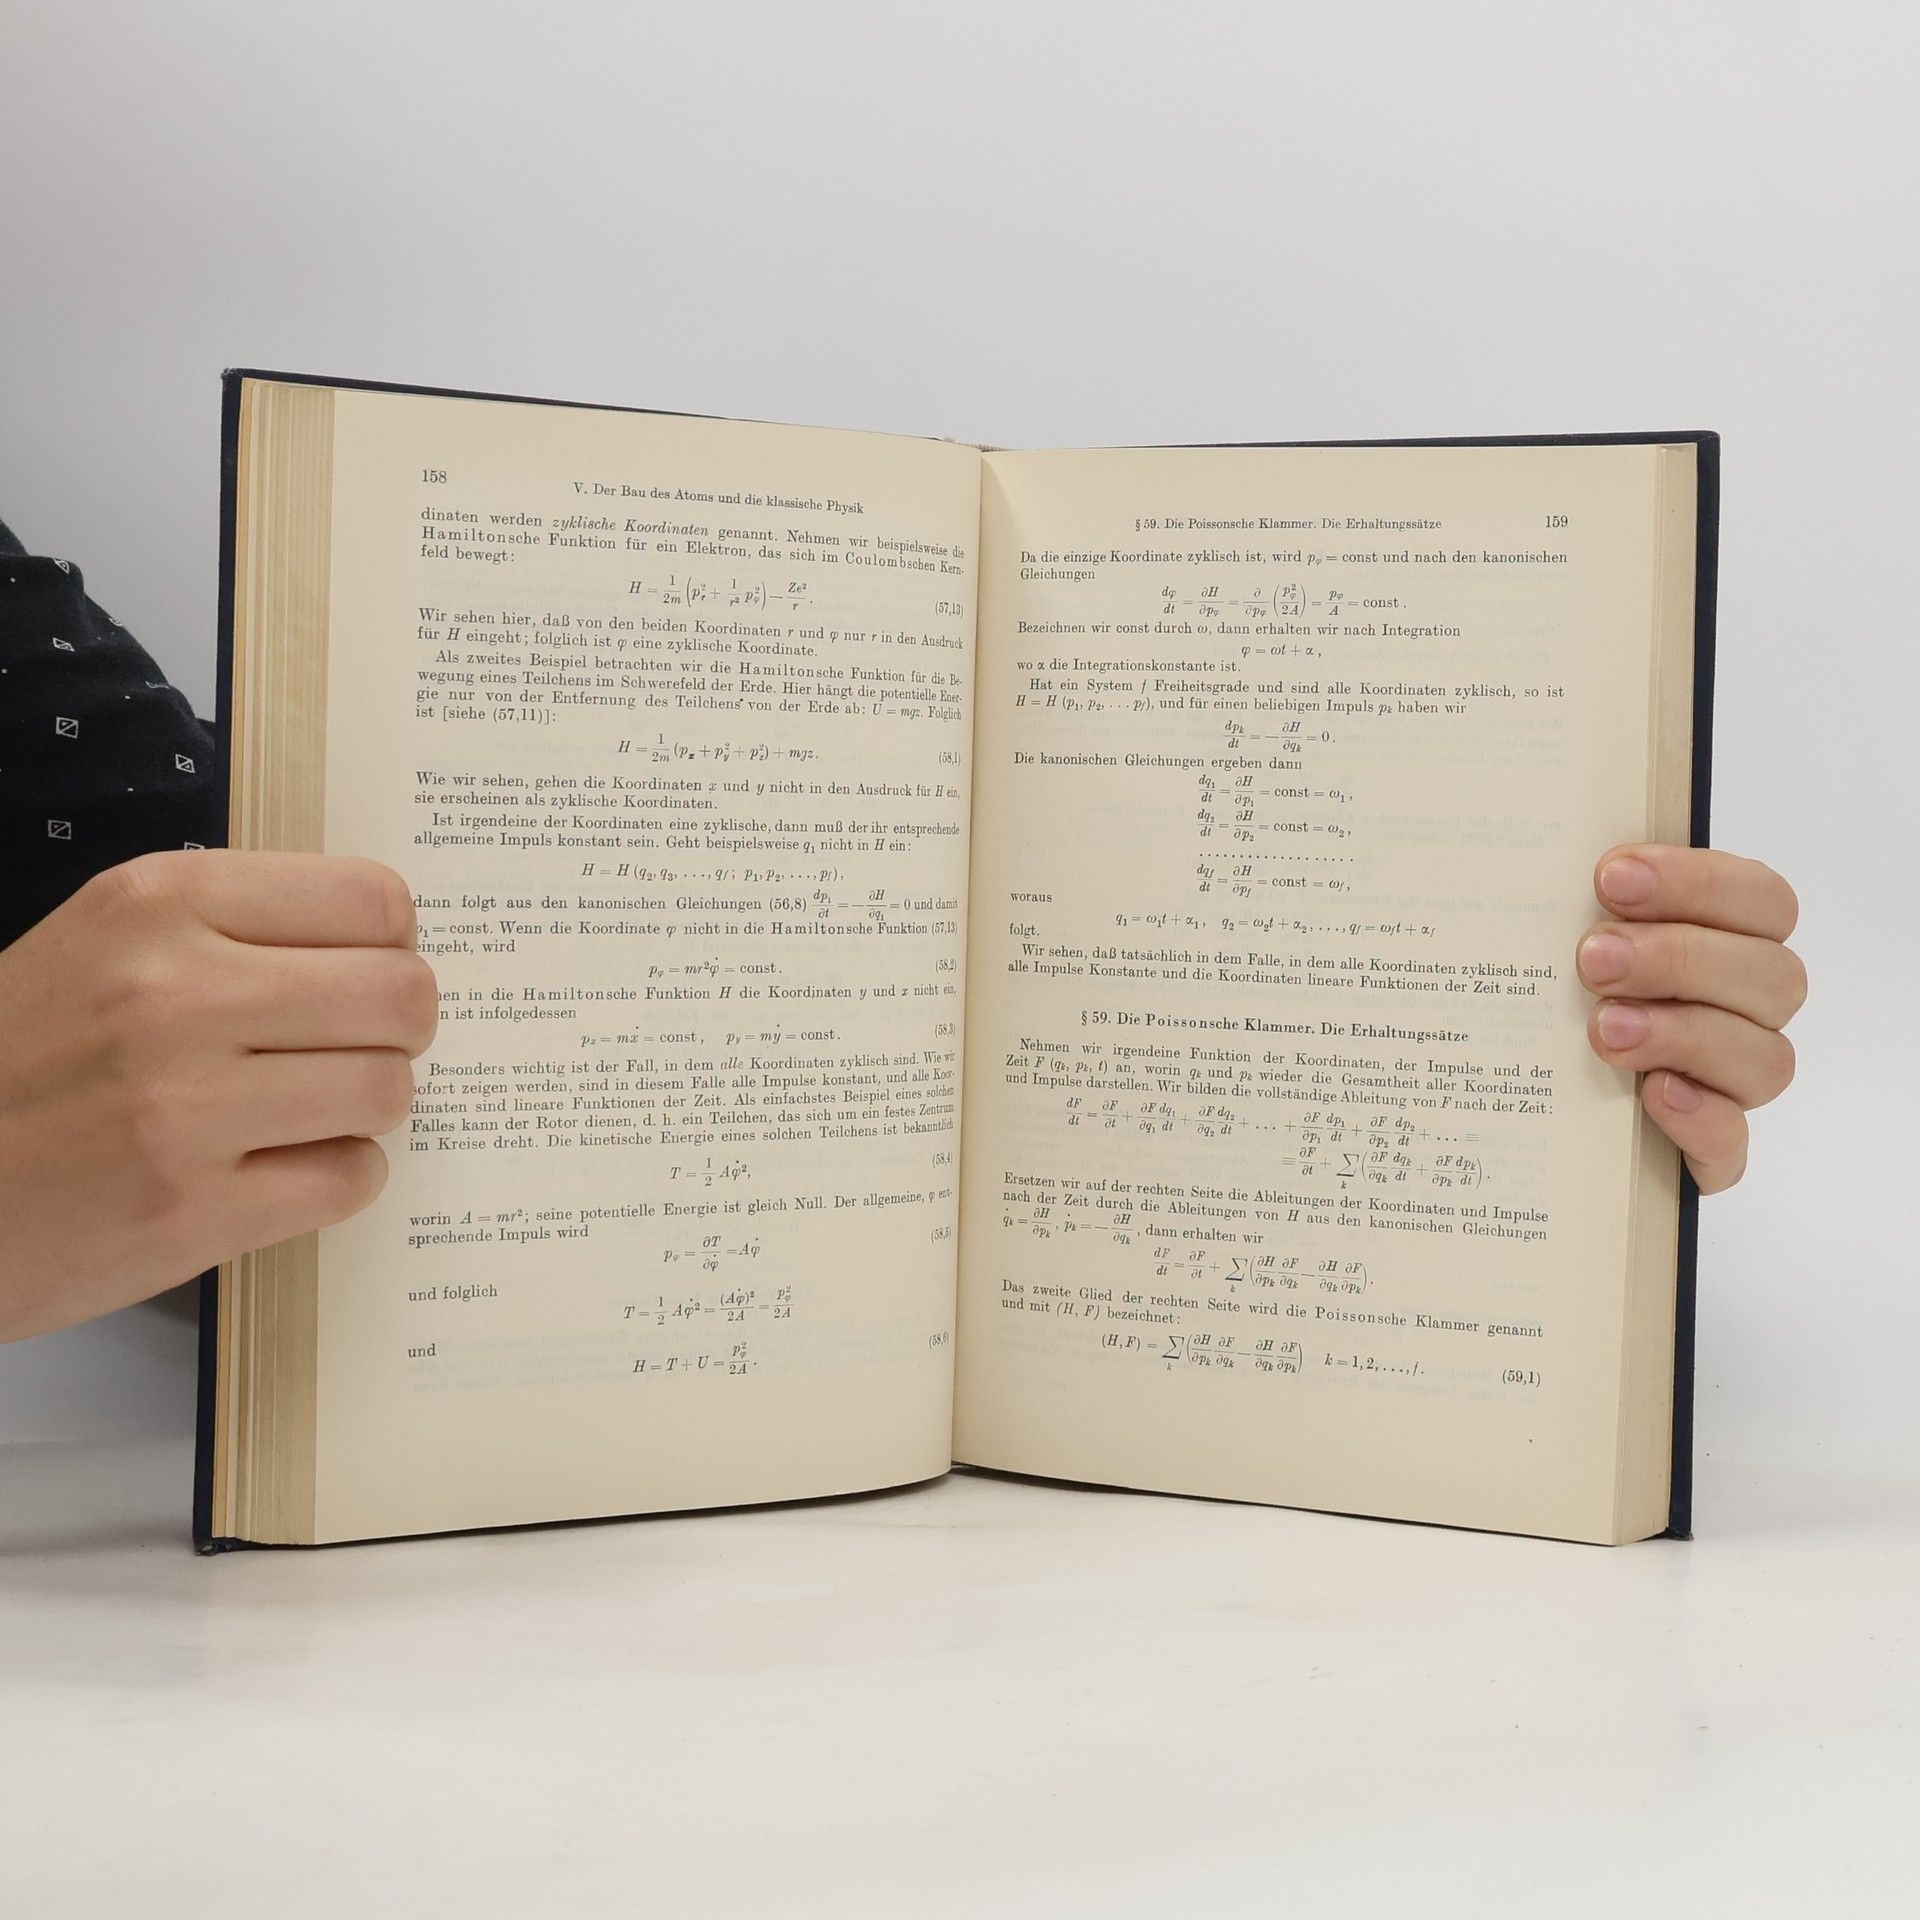 158
V. Der Bau des Atoms und die klassische Physik
dinaten werden zyklische Koordinaten genannt. Nehmen wir beispielsweise die
Hamiltonsche Funktion für ein Elektron, das sich im Coulombschen Kern-
feld bewegt:
H = 1/2m (p_r² + 1/r² p_φ²) − Ze²/r . (57,13)
Wir sehen hier, daß von den beiden Koordinaten r und φ nur r in den Ausdruck
für H eingeht; folglich ist φ eine zyklische Koordinate.
Als zweites Beispiel betrachten wir die Hamiltonsche Funktion für die Be-
wegung eines Teilchens im Schwerefeld der Erde. Hier hängt die potentielle Ener-
gie nur von der Entfernung des Teilchens von der Erde ab: U = mgz. Folglich
ist [siehe (57,11)]:
H = 1/2m (p_x + p_y² + p_z²) + mgz. (58,1)
Wie wir sehen, gehen die Koordinaten x und y nicht in den Ausdruck für H ein,
sie erscheinen als zyklische Koordinaten.
Ist irgendeine der Koordinaten eine zyklische, dann muß der ihr entsprechende
allgemeine Impuls konstant sein. Geht beispielsweise q₁ nicht in H ein:
H = H (q₂, q₃, ..., q_f; p₁, p₂, ..., p_f),
dann folgt aus den kanonischen Gleichungen (56,8) dp₁/∂t = −∂H/∂q₁ = 0 und damit
p₁ = const. Wenn die Koordinate φ nicht in die Hamiltonsche Funktion (57,13)
eingeht, wird
p_φ = mr²φ̇ = const. (58,2)
hen in die Hamiltonsche Funktion H die Koordinaten y und x nicht ein,
n ist infolgedessen
p_x = mẋ = const, p_y = mẏ = const. (58,3)
Besonders wichtig ist der Fall, in dem alle Koordinaten zyklisch sind. Wie wir
sofort zeigen werden, sind in diesem Falle alle Impulse konstant, und alle Koor-
dinaten sind lineare Funktionen der Zeit. Als einfachstes Beispiel eines solchen
Falles kann der Rotor dienen, d. h. ein Teilchen, das sich um ein festes Zentrum
im Kreise dreht. Die kinetische Energie eines solchen Teilchens ist bekanntlich
T = 1/2 Aφ̇², (58,4)
worin A = mr²; seine potentielle Energie ist gleich Null. Der allgemeine, φ ent-
sprechende Impuls wird
p_φ = ∂T/∂φ̇ = Aφ̇ (58,5)
und folglich
T = 1/2 Aφ̇² = (Aφ̇)²/2A = p_φ²/2A
und
H = T + U = p_φ²/2A . (58,6)
§ 59. Die Poissonsche Klammer. Die Erhaltungssätze
159
Da die einzige Koordinate zyklisch ist, wird p_φ = const und nach den kanonischen
Gleichungen
dφ/dt = ∂H/∂p_φ = ∂/∂p_φ (p_φ²/2A) = p_φ/A = const .
Bezeichnen wir const durch ω, dann erhalten wir nach Integration
φ = ωt + α ,
wo α die Integrationskonstante ist.
Hat ein System f Freiheitsgrade und sind alle Koordinaten zyklisch, so ist
H = H (p₁, p₂, ... p_f), und für einen beliebigen Impuls p_k haben wir
dp_k/dt = −∂H/∂q_k = 0 .
Die kanonischen Gleichungen ergeben dann
dq₁/dt = ∂H/∂p₁ = const = ω₁,
dq₂/dt = ∂H/∂p₂ = const = ω₂,
...................
dq_f/dt = ∂H/∂p_f = const = ω_f,
woraus
q₁ = ω₁t + α₁, q₂ = ω₂t + α₂, ..., q_f = ω_f t + α_f
folgt.
Wir sehen, daß tatsächlich in dem Falle, in dem alle Koordinaten zyklisch sind,
alle Impulse Konstante und die Koordinaten lineare Funktionen der Zeit sind.
§ 59. Die Poissonsche Klammer. Die Erhaltungssätze
Nehmen wir irgendeine Funktion der Koordinaten, der Impulse und der
Zeit F (q_k, p_k, t) an, worin q_k und p_k wieder die Gesamtheit aller Koordinaten
und Impulse darstellen. Wir bilden die vollständige Ableitung von F nach der Zeit:
dF/dt = ∂F/∂t + ∂F/∂q₁ dq₁/dt + ∂F/∂q₂ dq₂/dt + ... + ∂F/∂p₁ dp₁/dt + ∂F/∂p₂ dp₂/dt + ... ≡
≡ ∂F/∂t + ∑_k (∂F/∂q_k dq_k/dt + ∂F/∂p_k dp_k/dt) .
Ersetzen wir auf der rechten Seite die Ableitungen der Koordinaten und Impulse
nach der Zeit durch die Ableitungen von H aus den kanonischen Gleichungen
q̇_k = ∂H/∂p_k, ṗ_k = −∂H/∂q_k, dann erhalten wir
dF/dt = ∂F/∂t + ∑_k (∂H/∂p_k ∂F/∂q_k − ∂H/∂q_k ∂F/∂p_k) .
Das zweite Glied der rechten Seite wird die Poissonsche Klammer genannt
und mit (H, F) bezeichnet:
(H, F) = ∑_k (∂H/∂p_k ∂F/∂q_k − ∂H/∂q_k ∂F/∂p_k) k = 1, 2, ..., f. (59,1)